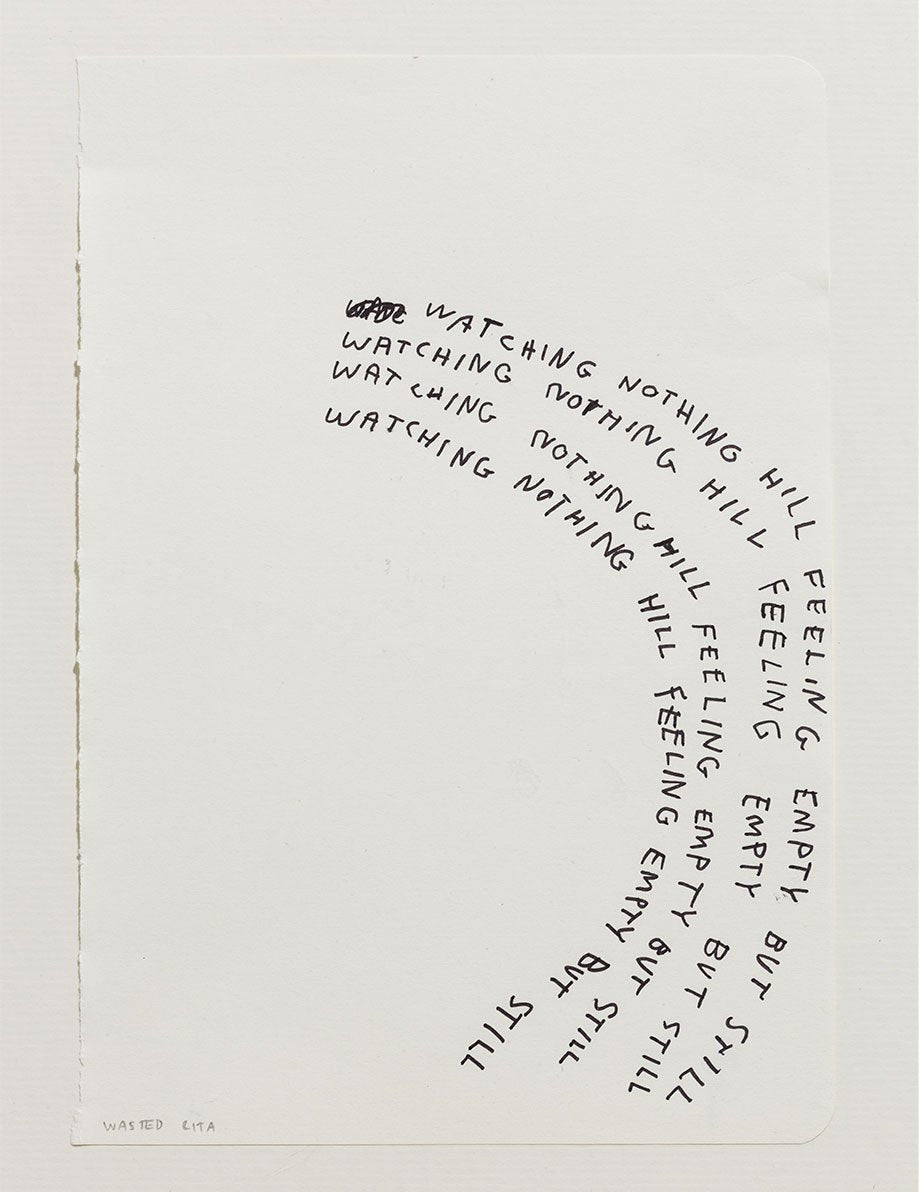 WATCHING NOTHING HILL FEELING EMPTY BUT STILL
WATCHING NOTHING HILL FEELING EMPTY BUT STILL
WATCHING NOTHING HILL FEELING EMPTY BUT STILL
WATCHING NOTHING HILL FEELING EMPTY BUT STILL
WASTED RITA